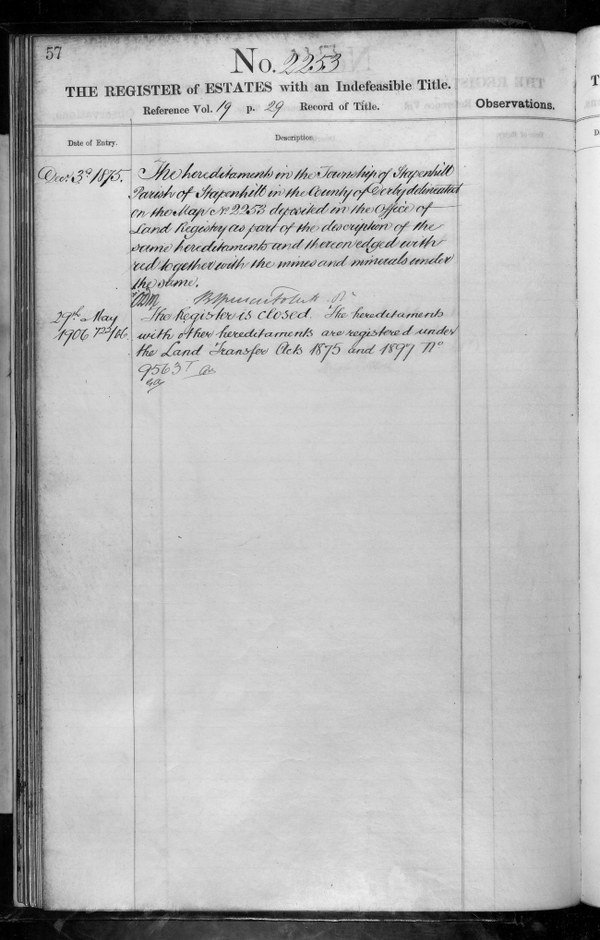 57
No. 2253
THE REGISTER of ESTATES with an Indefeasible Title.
Reference Vol. 19 p. 29 Record of Title.
Observations.
Date of Entry.
Description.
Decr. 3d 1875.
The hereditaments in the Township of Stapenhill
Parish of Stapenhill in the County of Derby delineated
on the Map No 2253 deposited in the Office of
Land Registry as part of the description of the
same hereditaments and thereon edged with
red together with the mines and minerals under
the same.
29th May
1906
The Register is closed. The hereditaments
with other hereditaments are registered under
the Land Transfer Acts 1875 and 1897 No
9563